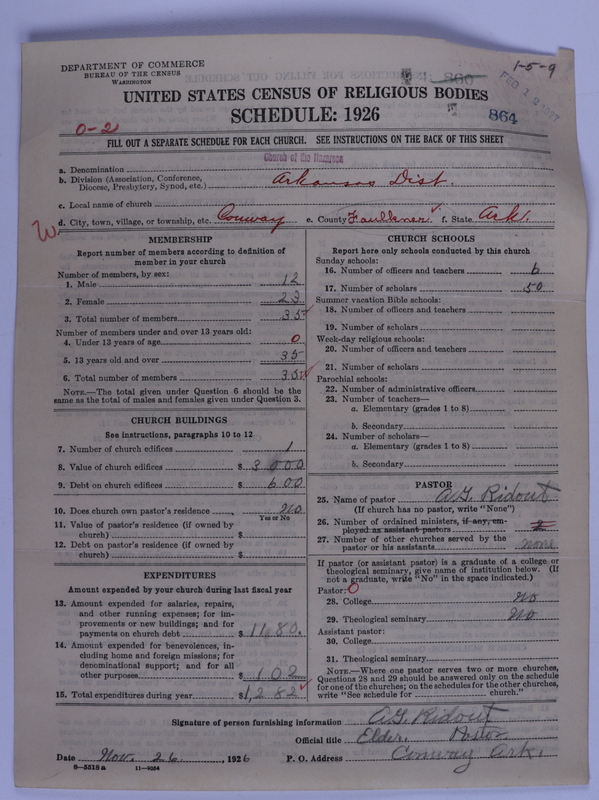 DEPARTMENT OF COMMERCE
BUREAU OF THE CENSUS
WASHINGTON
1-5-9
360
UNITED STATES CENSUS OF RELIGIOUS BODIES
SCHEDULE: 1926
864
0-2
FILL OUT A SEPARATE SCHEDULE FOR EACH CHURCH. SEE INSTRUCTIONS ON THE BACK OF THIS SHEET
Church of the Nazarene
a. Denomination
b. Division (Association, Conference, Diocese, Presbytery, Synod, etc.) Arkansas Dist.
c. Local name of church
d. City, town, village, or township, etc. Conway e. County Faulkner f. State Ark.
W
MEMBERSHIP
Report number of members according to definition of member in your church
Number of members, by sex:
1. Male 12
2. Female 23
3. Total number of members 35
Number of members under and over 13 years old:
4. Under 13 years of age 0
5. 13 years old and over 35
6. Total number of members 35
NOTE.—The total given under Question 6 should be the same as the total of males and females given under Question 3.
CHURCH BUILDINGS
See instructions, paragraphs 10 to 12
7. Number of church edifices 1
8. Value of church edifices $ 3000
9. Debt on church edifices $ 600
10. Does church own pastor's residence No
Yes or No
11. Value of pastor's residence (if owned by church) $
12. Debt on pastor's residence (if owned by church) $
EXPENDITURES
Amount expended by your church during last fiscal year
13. Amount expended for salaries, repairs, and other running expenses; for improvements or new buildings; and for payments on church debt $ 1180.
14. Amount expended for benevolences, including home and foreign missions; for denominational support; and for all other purposes $ 102
15. Total expenditures during year $ 1,282
CHURCH SCHOOLS
Report here only schools conducted by this church
Sunday schools:
16. Number of officers and teachers 6
17. Number of scholars 50
Summer vacation Bible schools:
18. Number of officers and teachers
19. Number of scholars
Week-day religious schools:
20. Number of officers and teachers
21. Number of scholars
Parochial schools:
22. Number of administrative officers
23. Number of teachers—
a. Elementary (grades 1 to 8)
b. Secondary
24. Number of scholars—
a. Elementary (grades 1 to 8)
b. Secondary
PASTOR
25. Name of pastor A.G. Ridout
(If church has no pastor, write "None")
26. Number of ordained ministers, if any, employed as assistant pastors
27. Number of other churches served by the pastor or his assistants none
If pastor (or assistant pastor) is a graduate of a college or theological seminary, give name of institution below. (If not a graduate, write "No" in the space indicated.)
Pastor: 0
28. College no
29. Theological seminary No
Assistant pastor:
30. College
31. Theological seminary
NOTE.—Where one pastor serves two or more churches, Questions 28 and 29 should be answered only on the schedule for one of the churches; on the schedules for the other churches, write "See schedule for church."
Signature of person furnishing information A.G. Ridout
Official title Elder. Pastor
Date Nov. 26, 1926 P. O. Address Conway Ark.
8—5518a 11—9054